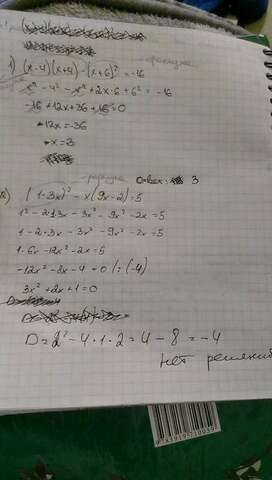 1) (x-4)(x+4) - (x+6)² = -16
x² - 4² - x² + 2x·6 + 6² = -16
-16 + 12x + 36 + 16 = 0
12x = -36
x = 3
Ответ: 3
2) (1-3x)² - x(9x-2) = 5
1² - 2·1·3x - 3x² - 9x² - 2x = 5
1 - 2·3x - 3x² - 9x² - 2x = 5
1·6x - 12x² - 2x = 5
-12x² - 8x - 4 = 0 |:(-4)
3x² + 2x + 1 = 0
D = 2² - 4·1·2 = 4 - 8 = -4
нет решений